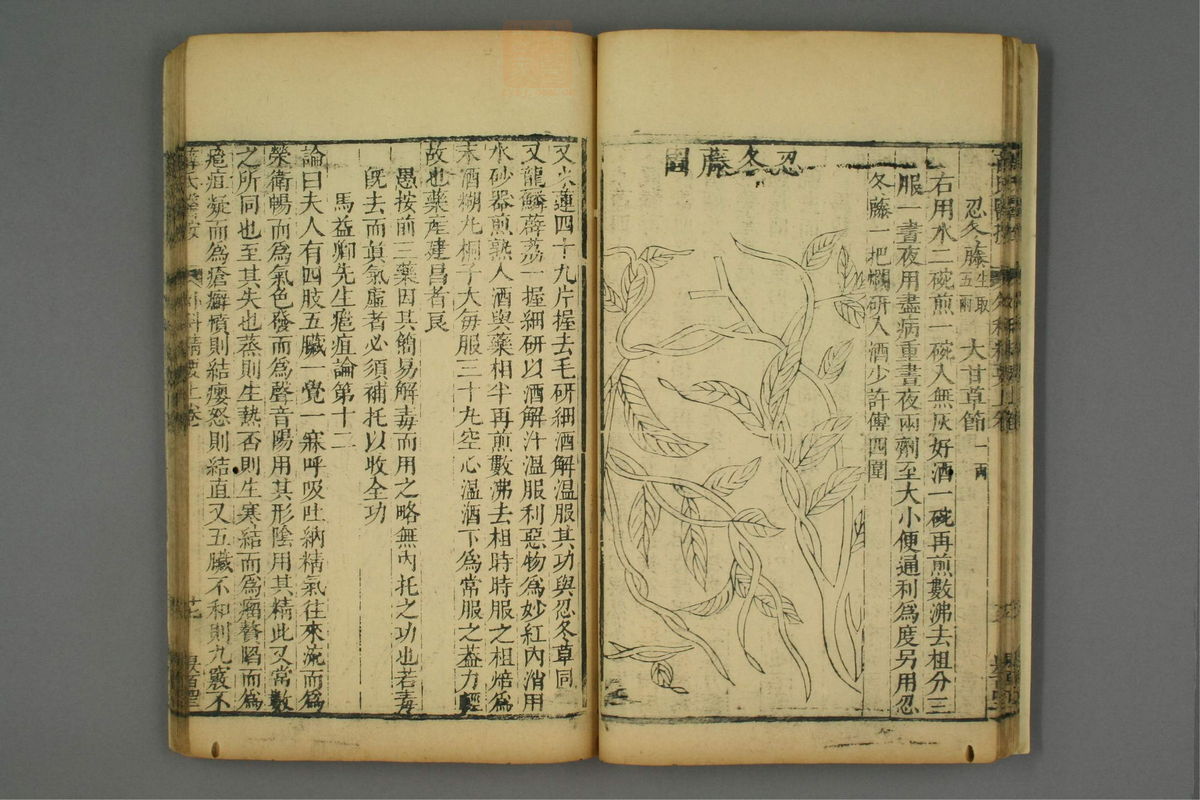 忍冬藤生取五兩 大甘草節一兩
右用水二碗煎一碗入無灰好酒一碗再煎數沸去柤分三
服一晝夜用盡病重晝夜兩劑至大小便通利為度另用忍
冬藤一把爛研入酒少許傅四圍
忍冬藤圖
又 蓮四十九片握去毛研細酒解温服其功與忍冬草同
又龍鱗薜荔一握細研以酒解汁温服利惡物為妙紅內消用
水砂器煎熟入酒與藥相半再煎數沸去柤時時服之柤焙為
末酒糊丸桐子大每服三十九空心温酒下為常服之葢力輕
故也藥産建昌者良
愚按前三藥因其簡易解毒而用之略無內托之功也若毒
旣去而眞氣虛者必須補托以收全功
馬益卿先生癰疽論第十二
論曰夫人有四肢五臟一覺一寐呼吸吐納精氣往來流而為
榮衛暢而為氣色發而為聲音陽用其形陰用其精此又常數
之所同也至其失也蒸則生熱否則生寒結而為瘤贅陷而為
癰疽凝而為瘡癬憤則結癭怒則結疽又五臟不和則九竅不